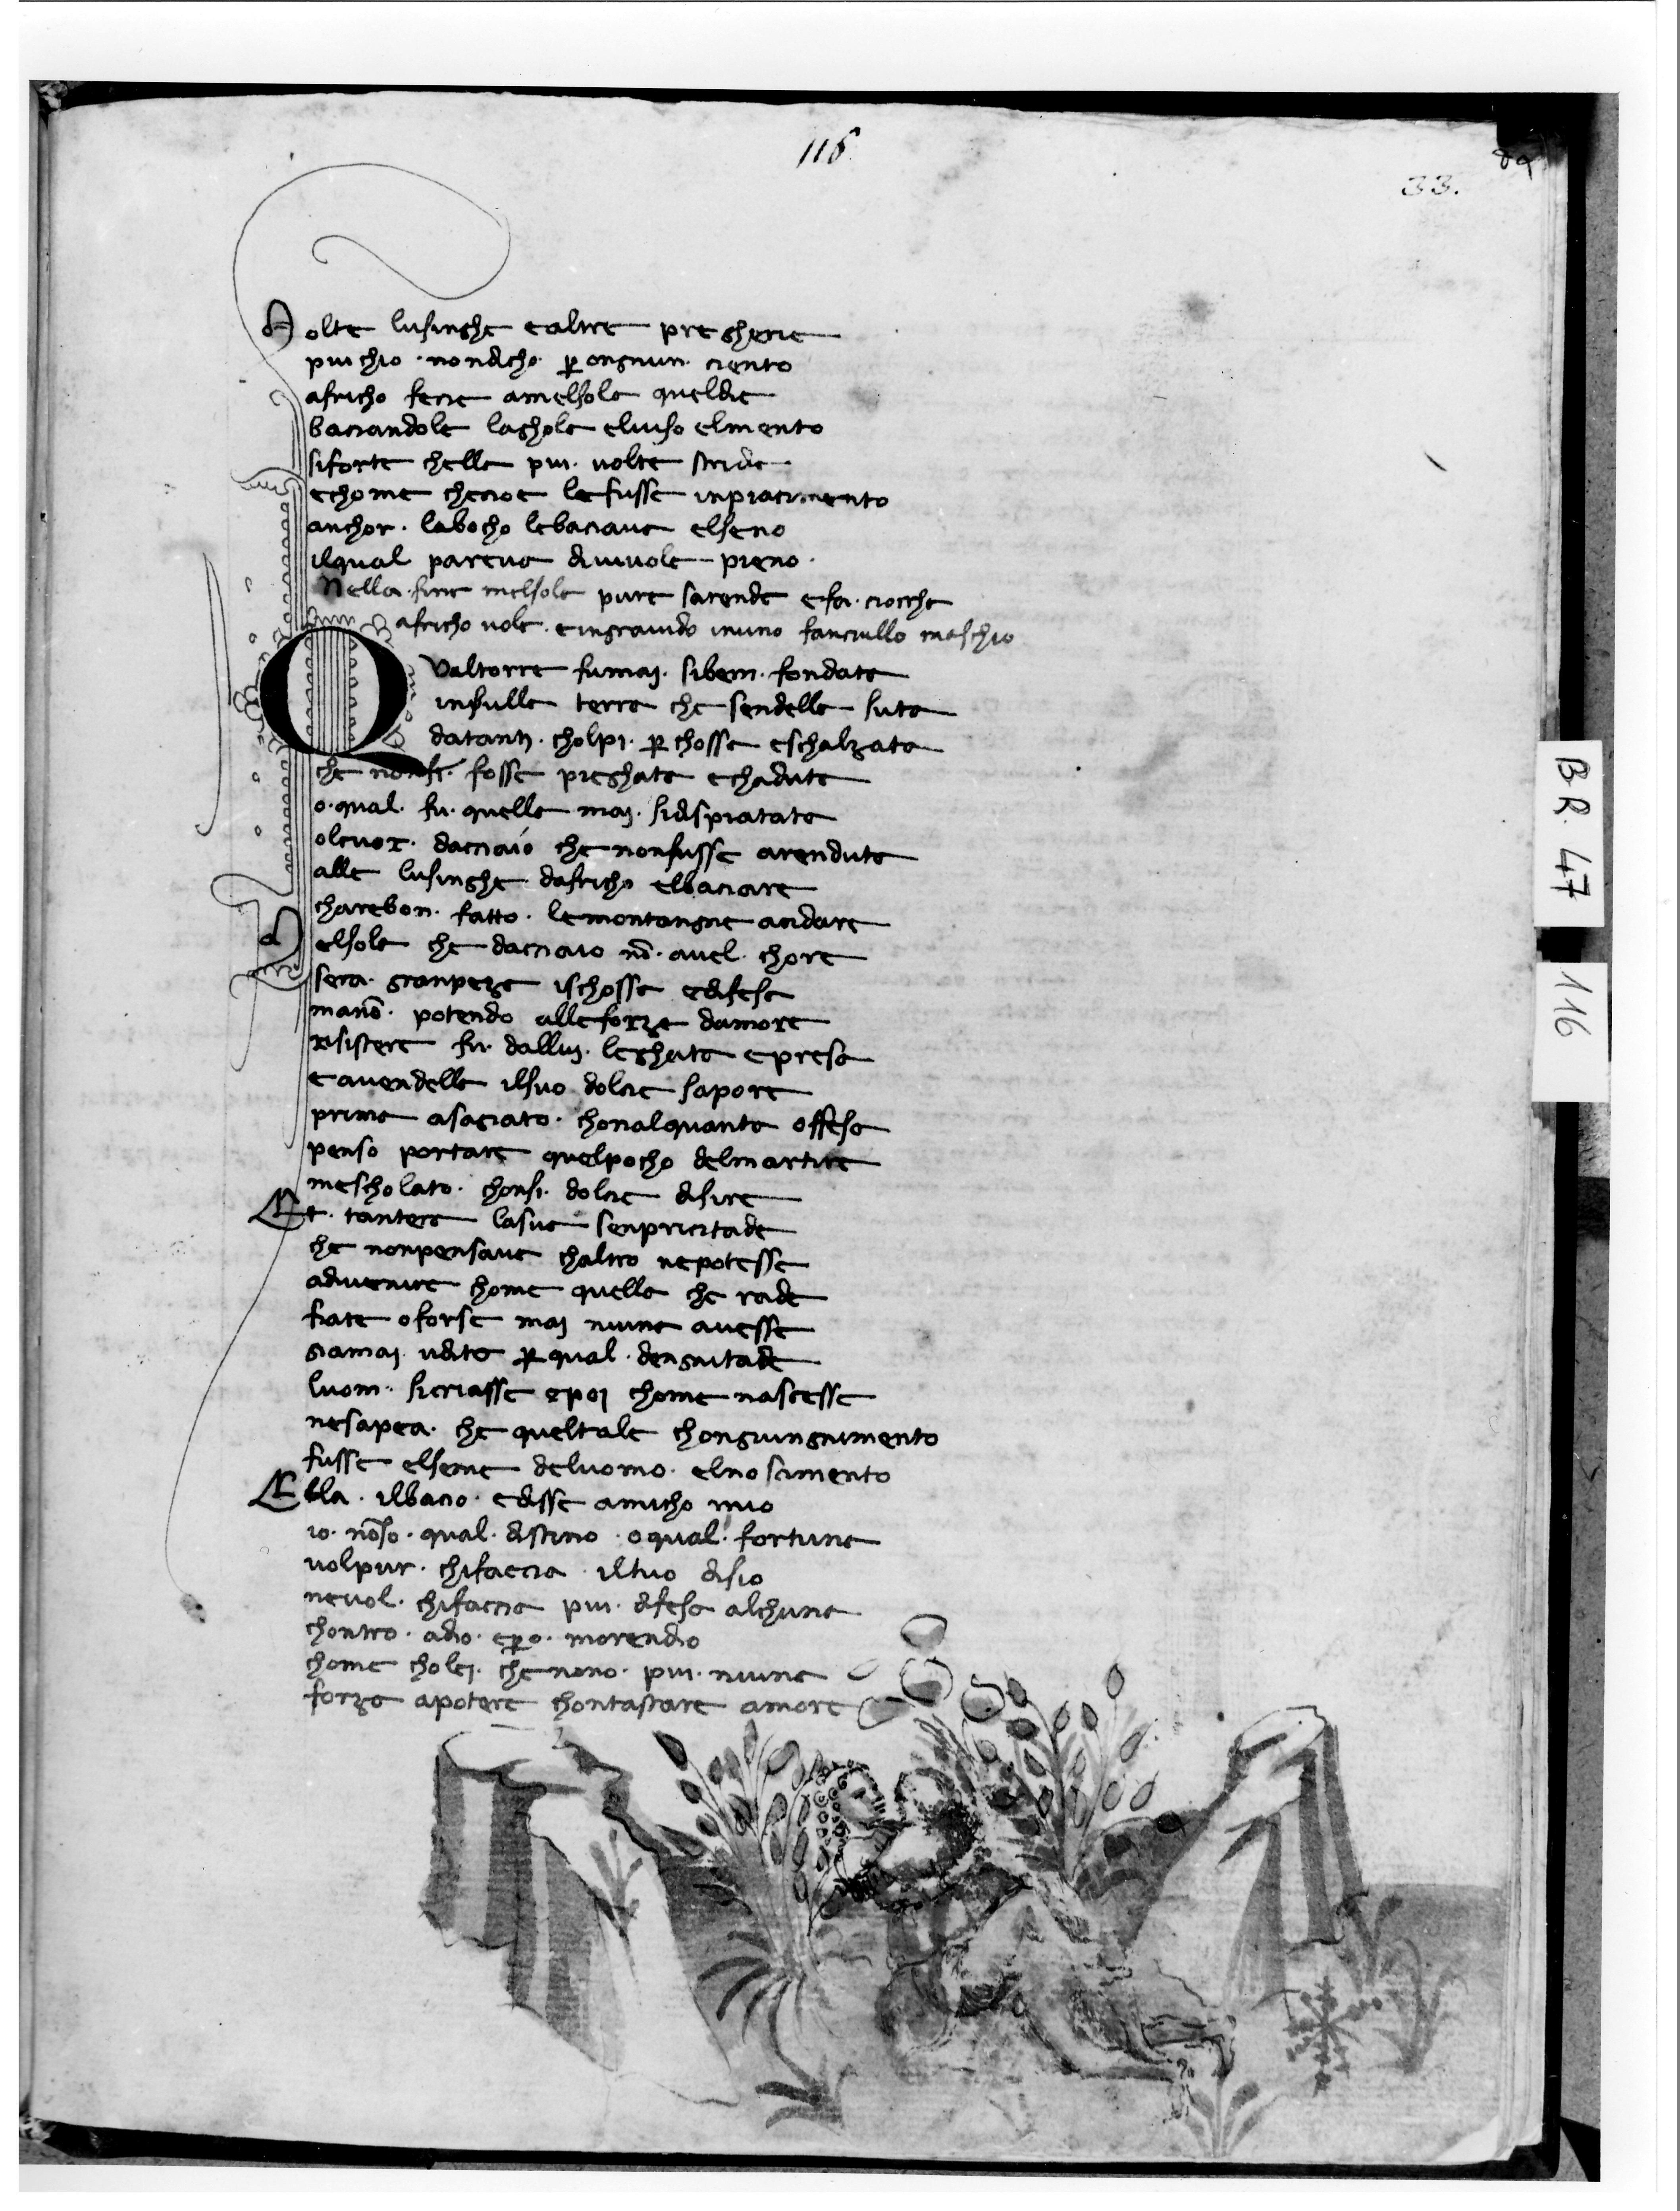 116
89
33.
Molte lusinghe e altre pregherie
piu chio · non dicho · ꝑ ongniun · ciento
africho fecie a melsola quel die
baciandole la ghola el viso el mento
si forte chella piu · volte stride
e chome che cio e le fusse in piacimento
anchor · la bocha le baciava el seno
il qual pareva di viuole pieno ·
Nella · fine melsola pure sarende e fa · cio che
africho vole · e ingravido in uno fanciullo maschio
QUal torre fu maj · si bem · fondata
in sulla terra che sendella suta
da tantj · cholpi · ꝑchossa e schalzata
che non si · fosse pieghata e chaduta
o · qual · fu · quella maj · si dispiatata
ol cuor · dacciaio che non fusse arenduta
alle lusinghe · dafricho el baciare
charebon · fatto · le montangne andare
Melsola che dacciaio nō · avel · chore
sera · gran peza ischossa e difesa
ma nō · potendo alle forze damore
risistere fu · da lluj · leghata e presa
e avendella il suo dolcie sapore
prima asagiato · chon alquanta offesa
penso portare quel pocho del martire
mescholato · chonsi · dolcie disire
Et · tantera la sua senpricitade
che non pensava chaltro ne potesse
adivenire chome quella che rade
fiate o forse maj niuna avesse
giamaj · udito ꝑ qual · dengnitade
luom · si criasse e poj chome nascesse
ne sapea · che quel tale chongiungnimento
fusse el seme del uomo · el nosimento
Ella · il bacio · e disse amicho mio
io · nō so · qual · distino · o qual · fortuna
vol pur · chi faccia · il tuo disio
ne vol · chi faccia piu · difesa alchuna
chontro · a dio · e ꝑo · morendio
chome cholej · che nono · piu · niuna
forza a potere chontastare amore
BR. 47
116